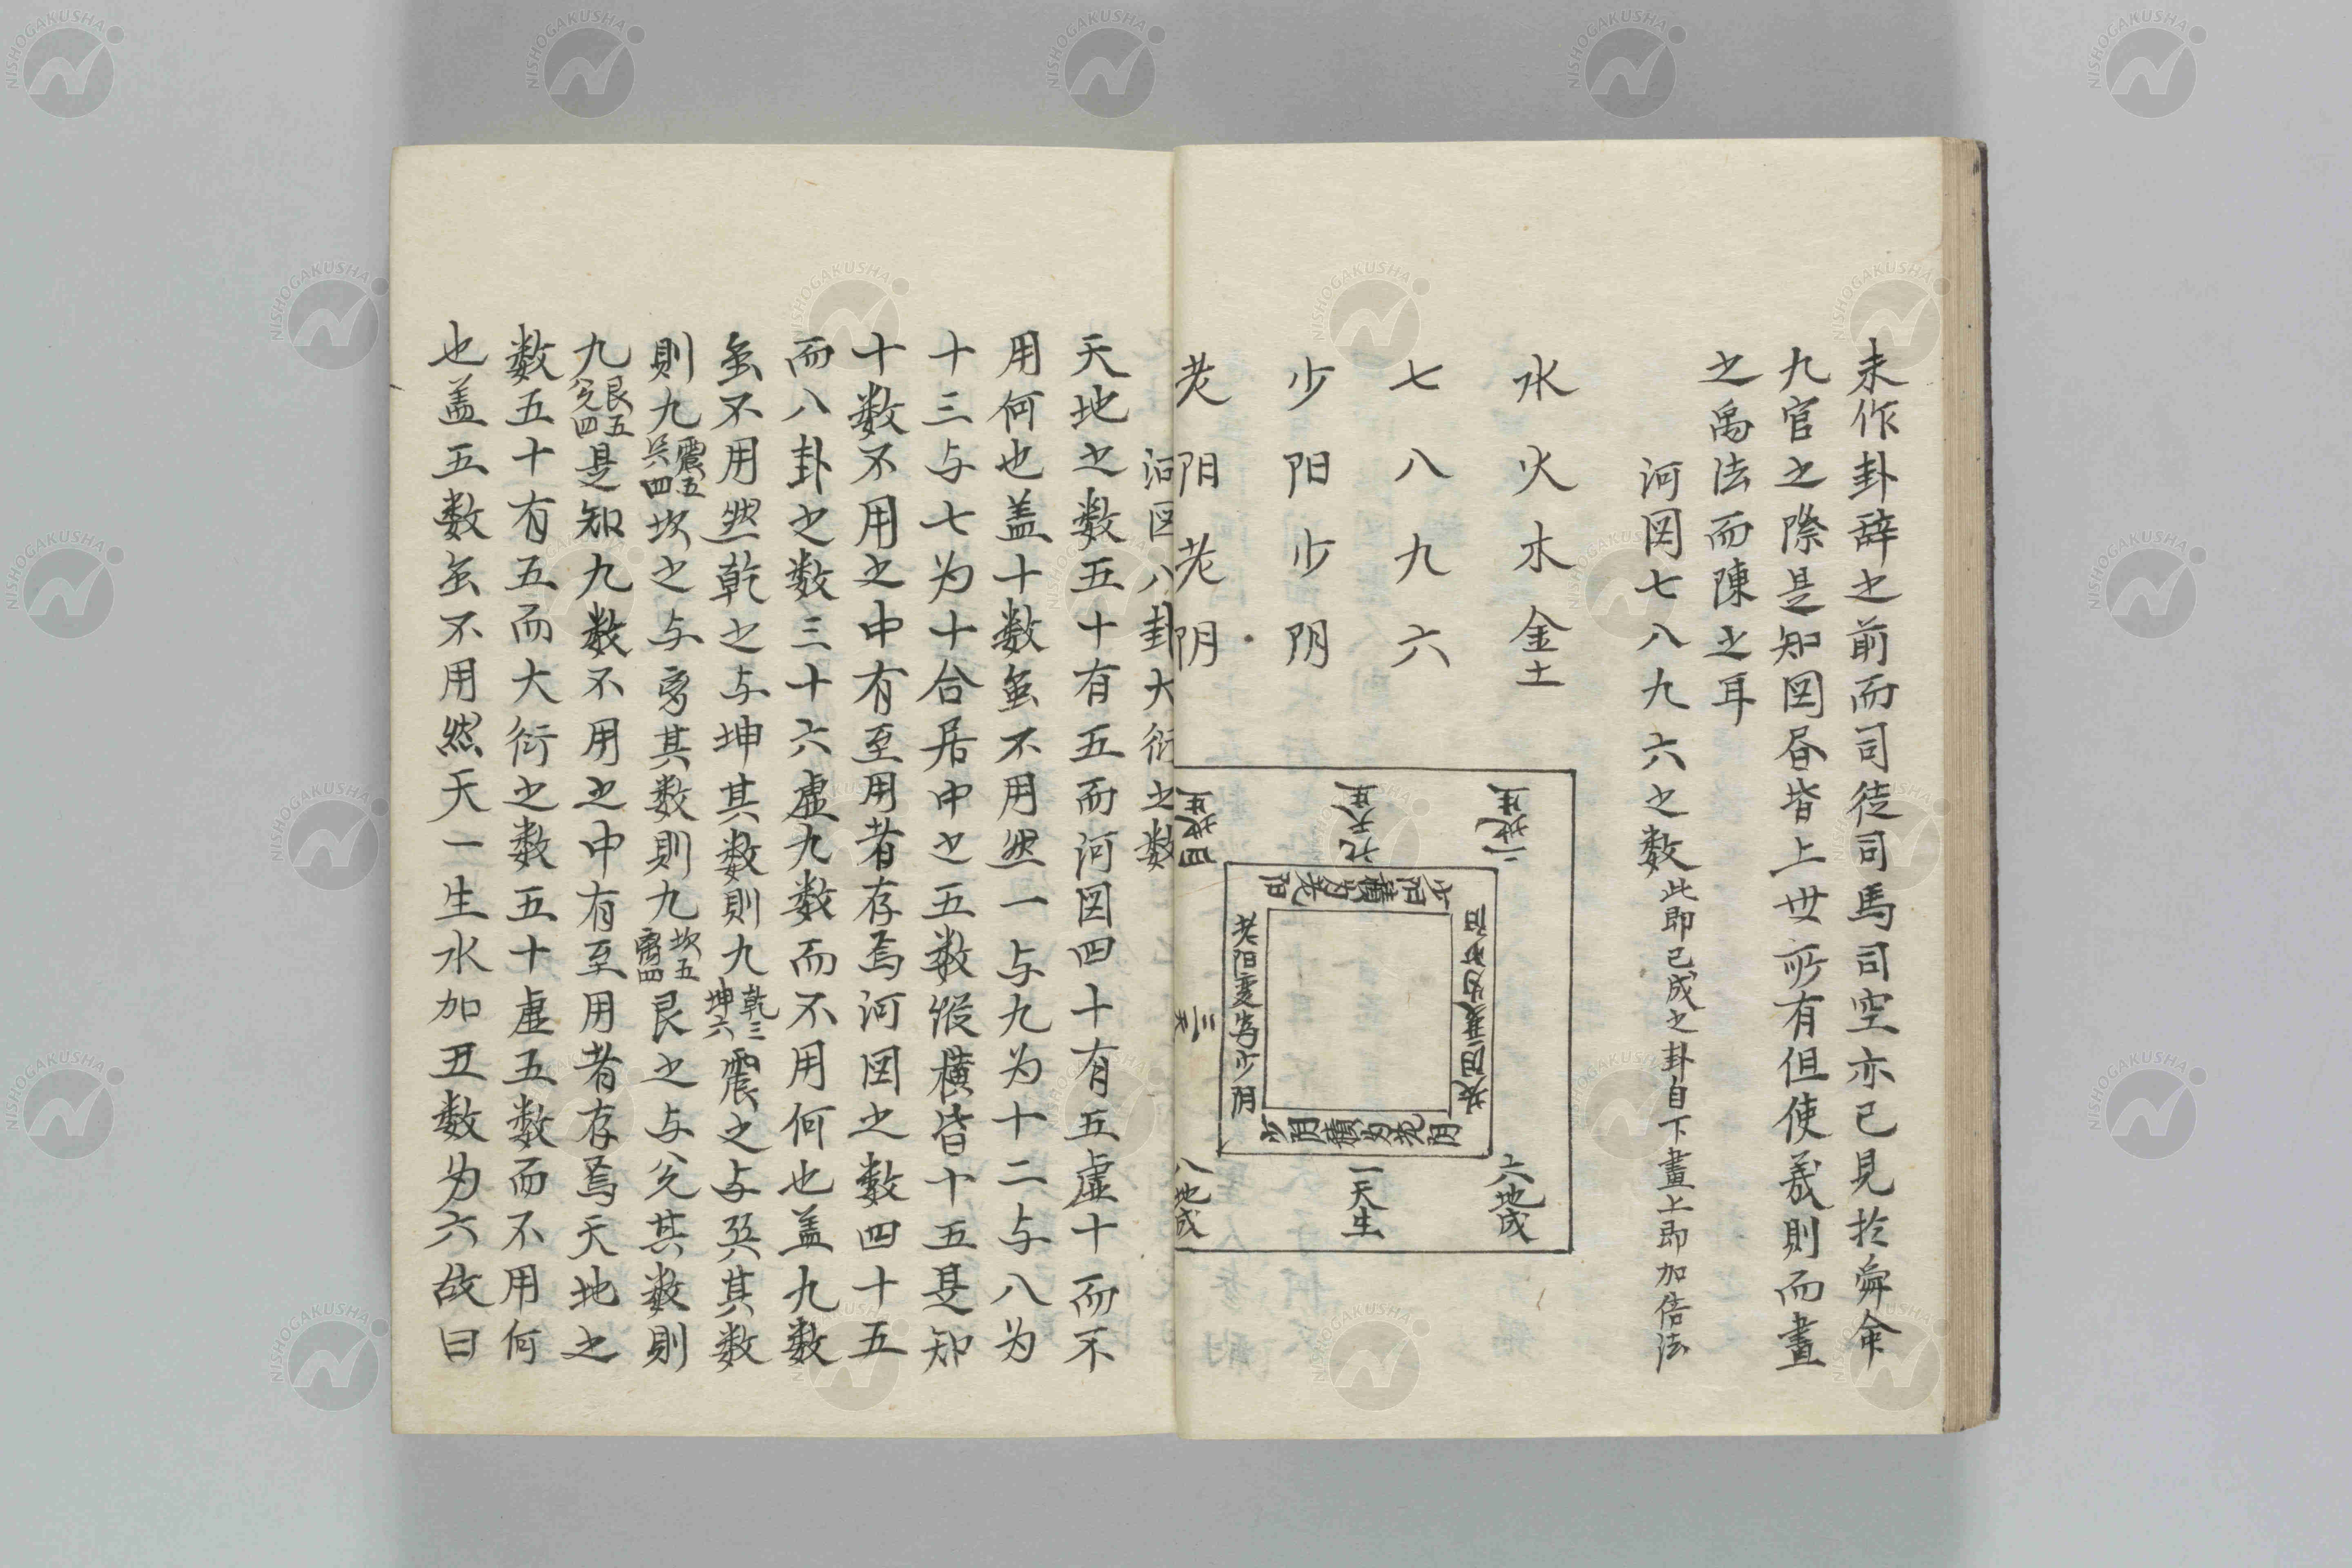 未作卦辞之前而司徒司馬司空亦已見於舜命
九官之際是知図昼皆上世所有但使羲則而畫
之禹法而陳之耳
河図七八九六之数此即已成之卦自下畫上即加倍法
水火木金土
七八九六
少阳少阴
老阴老阴
二地生
九天生
四地生
三天
八地成
一天生
六地成
老阳变为少阴
少阴積为老阴
河図八卦大衍之数
天地之数五十有五而河図四十有五虚十而不
用何也盖十数虽不用然一与九为十二与八为
十三与七为十合居中之五数縱横皆十五是知
十数不用之中有至用者存焉河図之数四十五
而八卦之数三十六虚九数而不用何也盖九数
虽不用然乾之与坤其数則九乾三坤六震之与巽其数
則九震五巽四坎之与离其数則九坎五离四艮之与兊其数則
九艮五兊四是知九数不用之中有至用者存焉天地之
数五十有五而大衍之数五十虚五数而不用何
也盖五数虽不用然天一生水加五数为六故曰
NISHOGAKUSHA